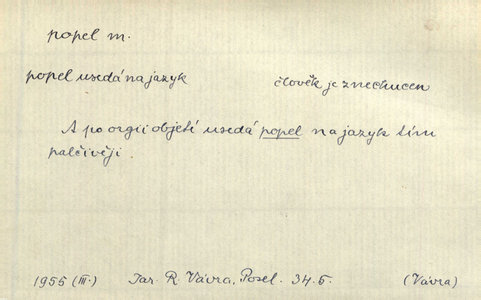 popel m.
popel usedá na jazyk člověk je znechucen
A po orgii objetí usedá popel na jazyk tím
palčivěji.
1955 (III.) Jar. R. Vávra, Posel. 34.5. (Vávra)